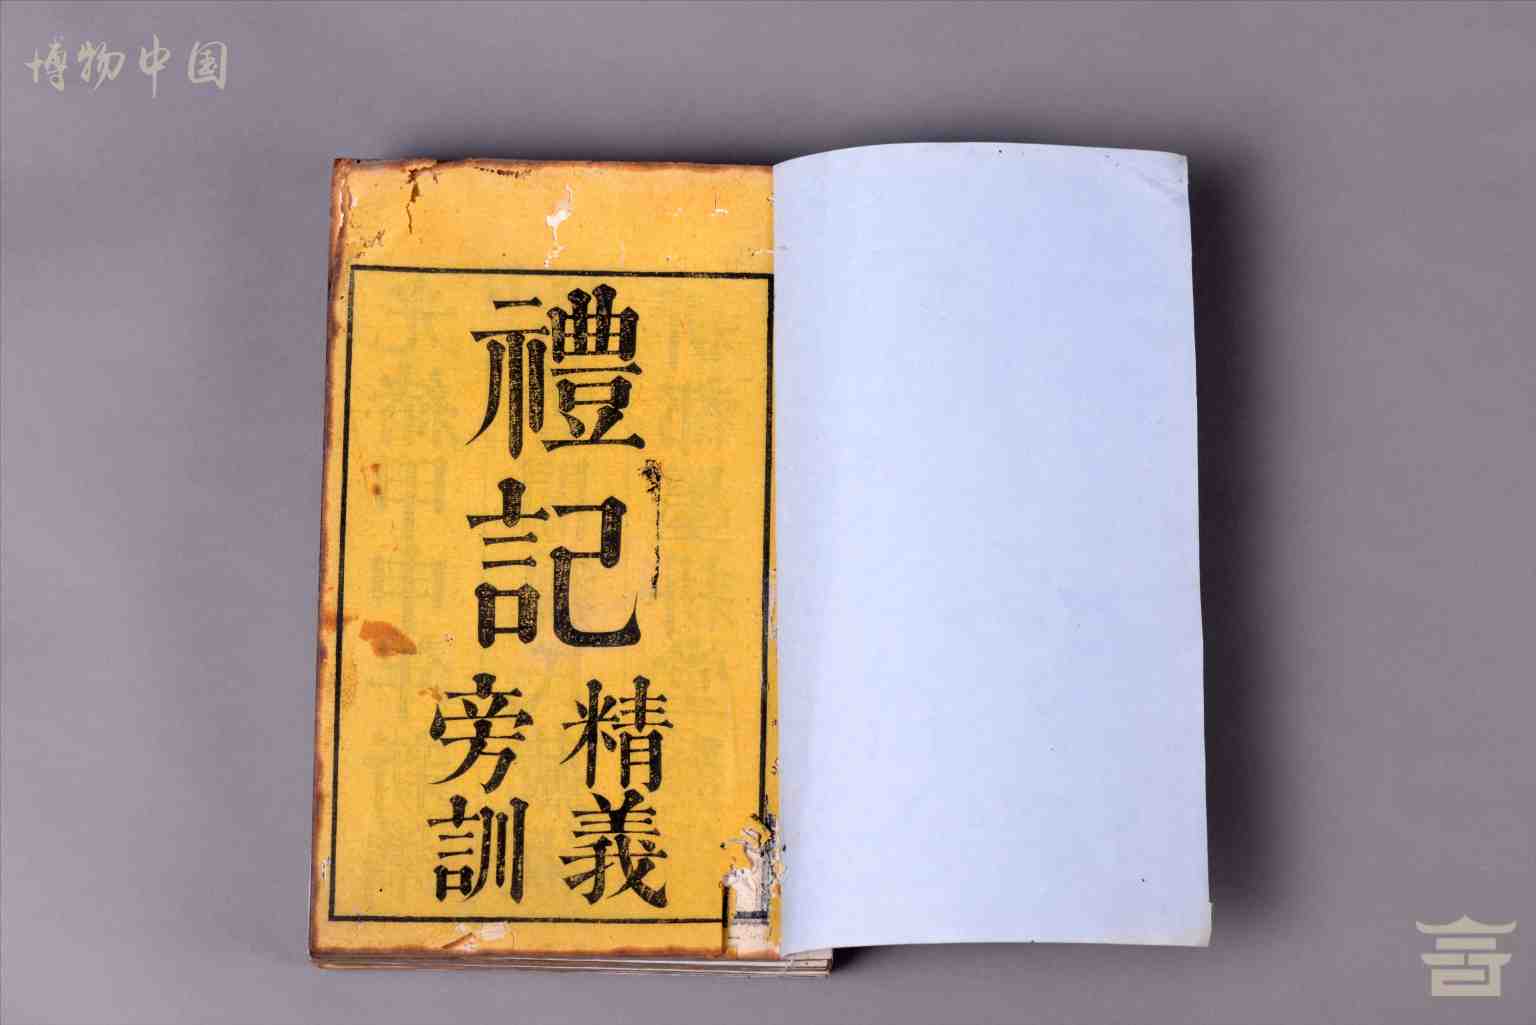 博物中国
禮記
精義
旁訓